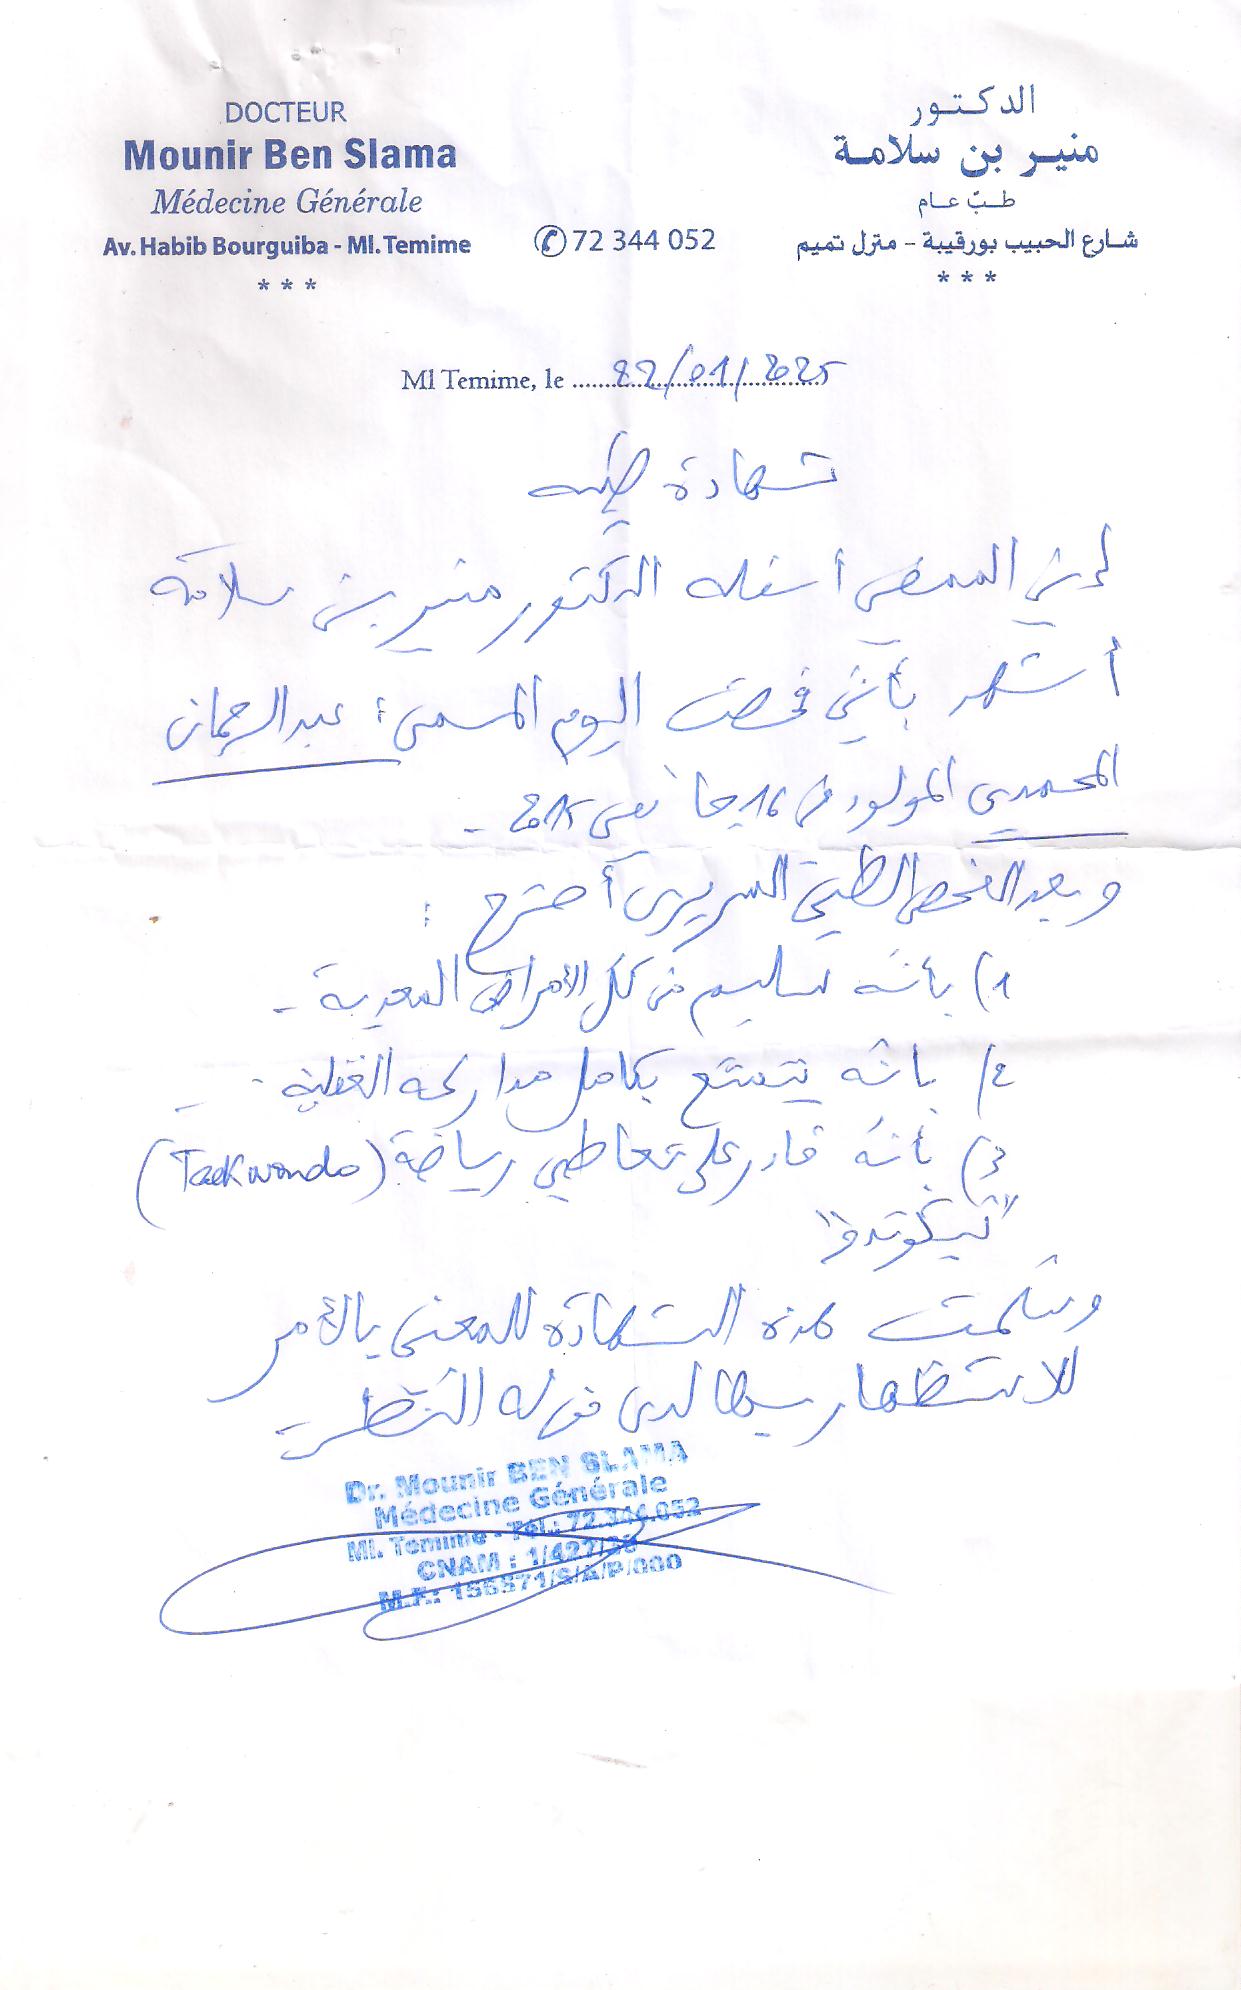 DOCTEUR
Mounir Ben Slama
Médecine Générale
Av. Habib Bourguiba - Ml. Temime
* * *
✆ 72 344 052
الدكتور
منير بن سلامة
طبّ عام
شارع الحبيب بورقيبة - منزل تميم
* * *
Ml Temime, le 22/01/2025
شهادة طبية
إني الممضي أسفله الدكتور منير بن سلامة
أشهد بأنني فحصت اليوم المسمى: عبد الرحمان
المحمدي المولود في 16 جانفي 2015 -
وبعد الفحص الطبي السريري أصرح :
1) بأنه سليم من كل الأمراض المعدية -
2/ بأنه يتمتع بكامل مداركه العقلية -
3) بأنه قادر على تعاطي رياضة (Taekwondo)
"تيكوندو"
وسلمت هذه الشهادة للمعني بالأمر
للاستظهار بها لدى من له النظر -
Dr. Mounir BEN SLAMA
Médecine Générale
Ml. Temime - Tél.: 72.344.052
CNAM : 1/427
M.F.: /S/A/P/000